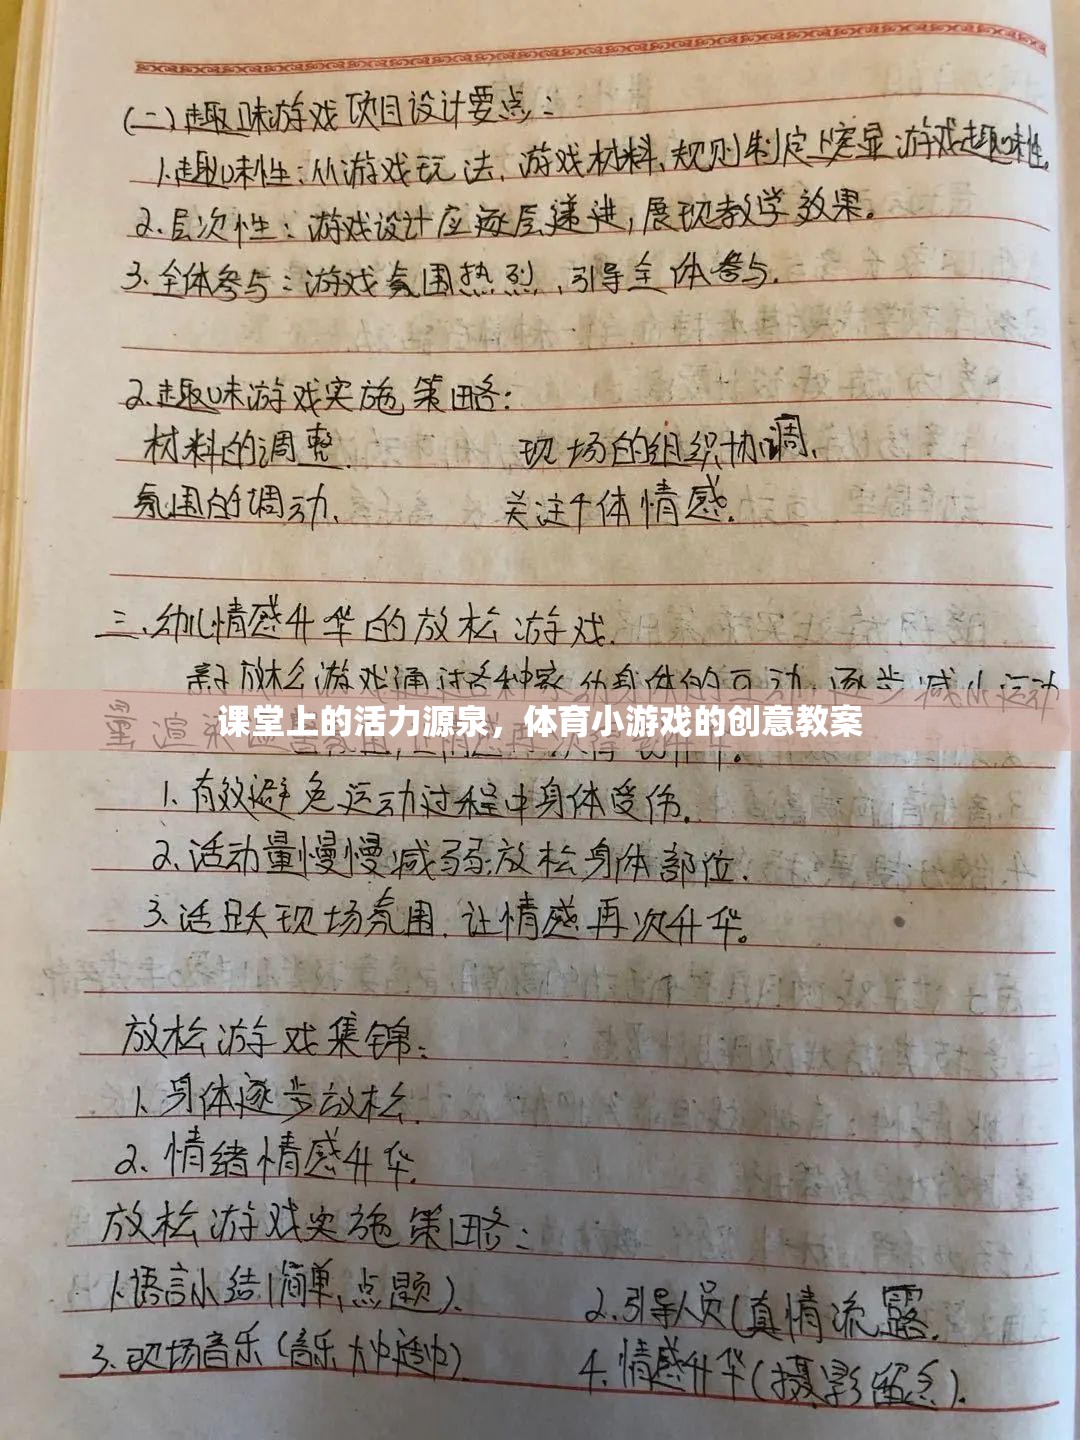 (一)趣味游戏项目设计要点:
1.趣味性:从游戏玩法、游戏材料、规则制定上突显游戏趣味性。
2.层次性:游戏设计应逐层递进,展现教学效果。
3.全体参与:游戏氛围热烈、引导全体参与.
2.趣味游戏实施策略:
材料的调整. 现场的组织协调.
氛围的调动. 关注个体情感.
三.幼儿情感升华的放松游戏.
亲子放松游戏通过各种家 身体的互动,逐步减小运动
课堂上的活力源泉,体育小游戏的创意教案
量渲染 升华。
1.有效避免运动过程中身体受伤.
2.活动量慢慢减弱放松身体部位.
3.活跃现场氛围.让情感再次升华。
放松游戏集锦:
1.身体逐步放松.
2.情绪情感升华.
放松游戏实施策略:
1.语言小结(简单,点题). 2.引导人员(真情流露.
3.现场音乐(音乐 ) 4.情感升华(摄影留念).